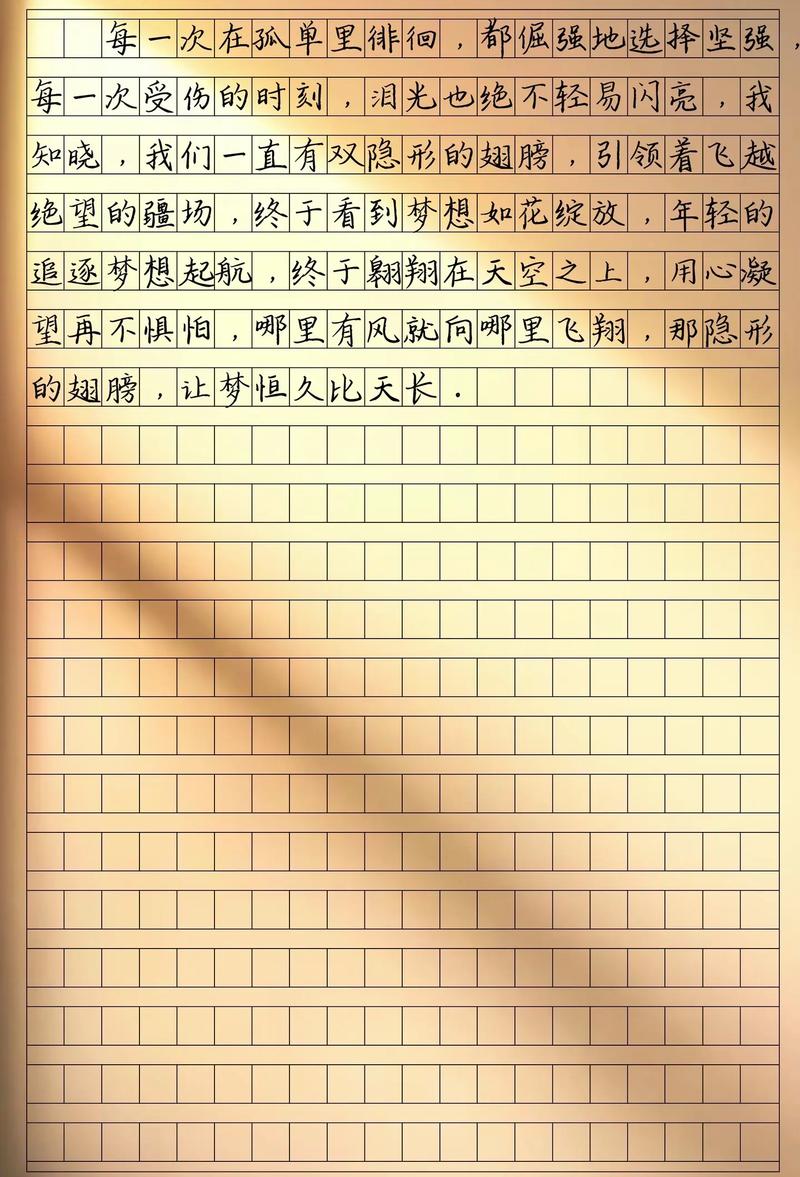 每一次在孤单里徘徊，都倔强地选择坚强，
每一次受伤的时刻，泪光也绝不轻易闪亮，我
知晓，我们一直有双隐形的翅膀，引领着飞越
绝望的疆场，终于看到梦想如花绽放，年轻的
追逐梦想起航，终于翱翔在天空之上，用心凝
望再不惧怕，哪里有风就向哪里飞翔，那隐形
的翅膀，让梦恒久比天长．